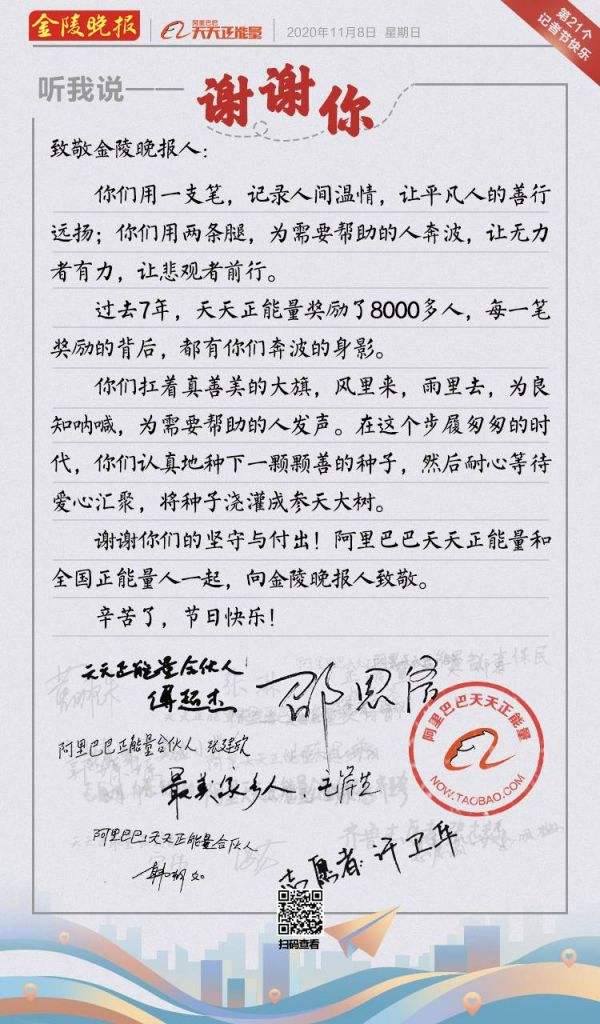 金陵晚报
阿里巴巴
天天正能量
2020年11月8日 星期日
第21个
记者节快乐
听我说——
谢谢你
致敬金陵晚报人:
你们用一支笔,记录人间温情,让平凡人的善行
远扬;你们用两条腿,为需要帮助的人奔波,让无力
者有力,让悲观者前行。
过去7年,天天正能量奖励了8000多人,每一笔
奖励的背后,都有你们奔波的身影。
你们扛着真善美的大旗,风里来,雨里去,为良
知呐喊,为需要帮助的人发声。在这个步履匆匆的时
代,你们认真地种下一颗颗善的种子,然后耐心等待
爱心汇聚,将种子浇灌成参天大树。
谢谢你们的坚守与付出!阿里巴巴天天正能量和
全国正能量人一起,向金陵晚报人致敬。
辛苦了,节日快乐!
天天正能量合伙人
傅超杰
阿里巴巴正能量合伙人
最美家乡人
阿里巴巴天天正能量合伙人
志愿者:许卫华
阿里巴巴天天正能量
NOW.TAOBAO.COM
扫码查看